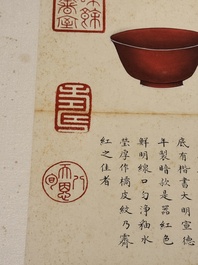 底有楷書大明宣德
年製暗款是器紅色
鮮明線口勻淨釉水
瑩厚作橘皮紋乃霽
紅之佳者
八旬天恩